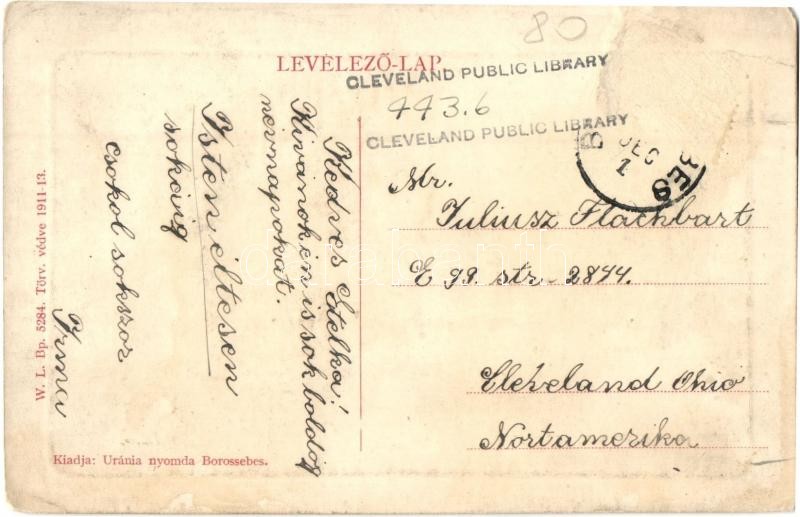 80
LEVÉLEZŐ-LAP.
CLEVELAND PUBLIC LIBRARY
443.6
CLEVELAND PUBLIC LIBRARY
B DEC 1 BES
Kedves Etelka!
Kivánok én is sok boldog
névnapokat.
Isten éltesen
sokáig
csokol sokszor
Irma
Mr.
Juliusz Flachbart
E 99. str. 2844.
Cleveland Ohio
Nortamerika
W. L. Bp. 5284. Törv. védve 1911-13.
Kiadja: Uránia nyomda Borossebes.